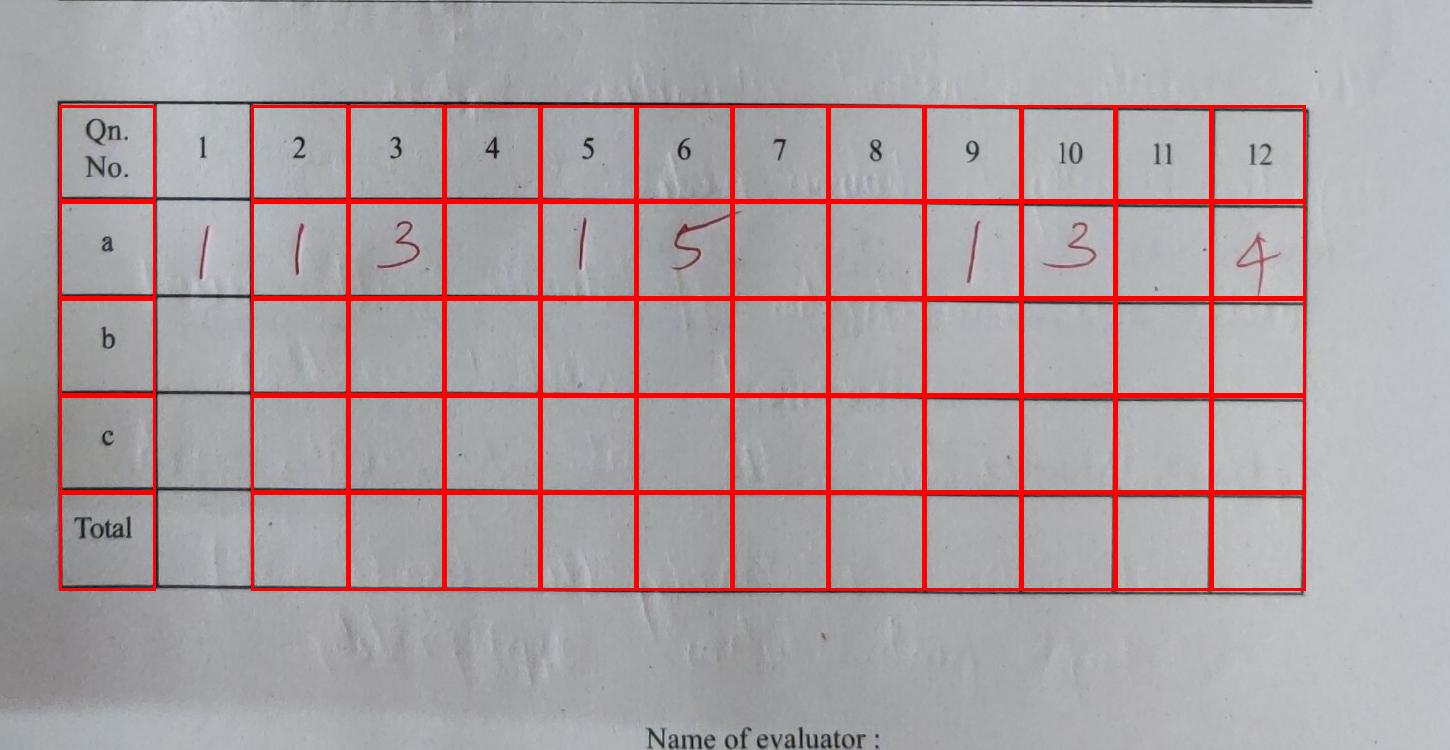 Qn. No. 1 2 3 4 5 6 7 8 9 10 11 12
a 1 1 3 1 5 1 3 4
b
c
Total
Name of evaluator :